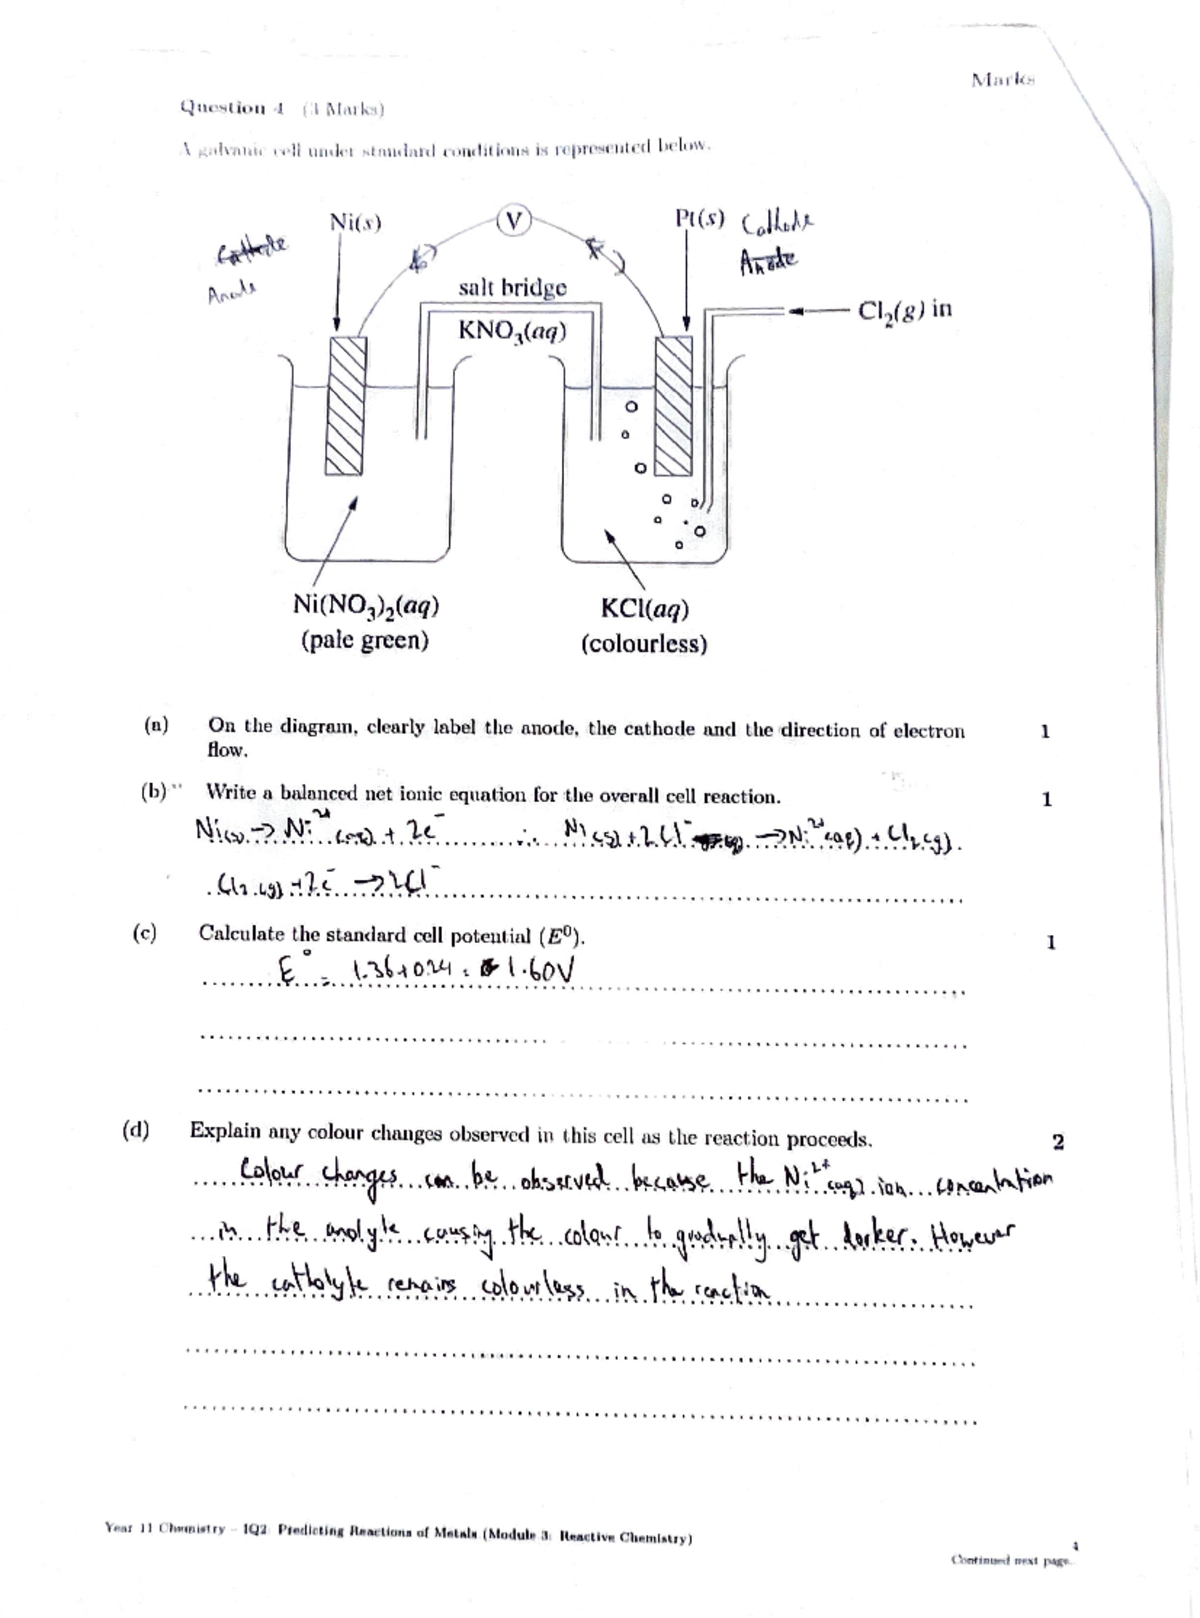 Marks
Question 4 (3 Marks)
A galvanic cell under standard conditions is represented below.
Ni(s)
V
Pt(s) Cathode
Cathode
Anode
Anode
salt bridge
KNO₃(aq)
Cl₂(g) in
Ni(NO₃)₂(aq)
(pale green)
KCl(aq)
(colourless)
(a) On the diagram, clearly label the anode, the cathode and the direction of electron 1
flow.
(b) Write a balanced net ionic equation for the overall cell reaction. 1
Ni(s) → Ni²⁺(aq) + 2e⁻ ∴ Ni(s) + 2Cl⁻(aq) → Ni²⁺(aq) + Cl₂(g).
Cl₂(g) + 2e⁻ → 2Cl⁻
(c) Calculate the standard cell potential (E⁰). 1
E° = 1.36 + 0.24 = 1.60V
(d) Explain any colour changes observed in this cell as the reaction proceeds. 2
Colour changes can be observed because the Ni²⁺(aq) ion concentration
in the anolyte causing the colour to gradually get darker. However
the catholyte remains colourless in the reaction
Year 11 Chemistry – IQ2: Predicting Reactions of Metals (Module 3: Reactive Chemistry)
4
Continued next page.